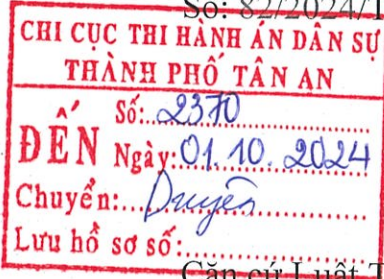 Số: 82/2024/T
CHI CỤC THI HÀNH ÁN DÂN SỰ
THÀNH PHỐ TÂN AN
ĐẾN
Số: 2370
Ngày: 01.10.2024
Chuyển: Duyên
Lưu hồ sơ số:
Căn cứ Luật T